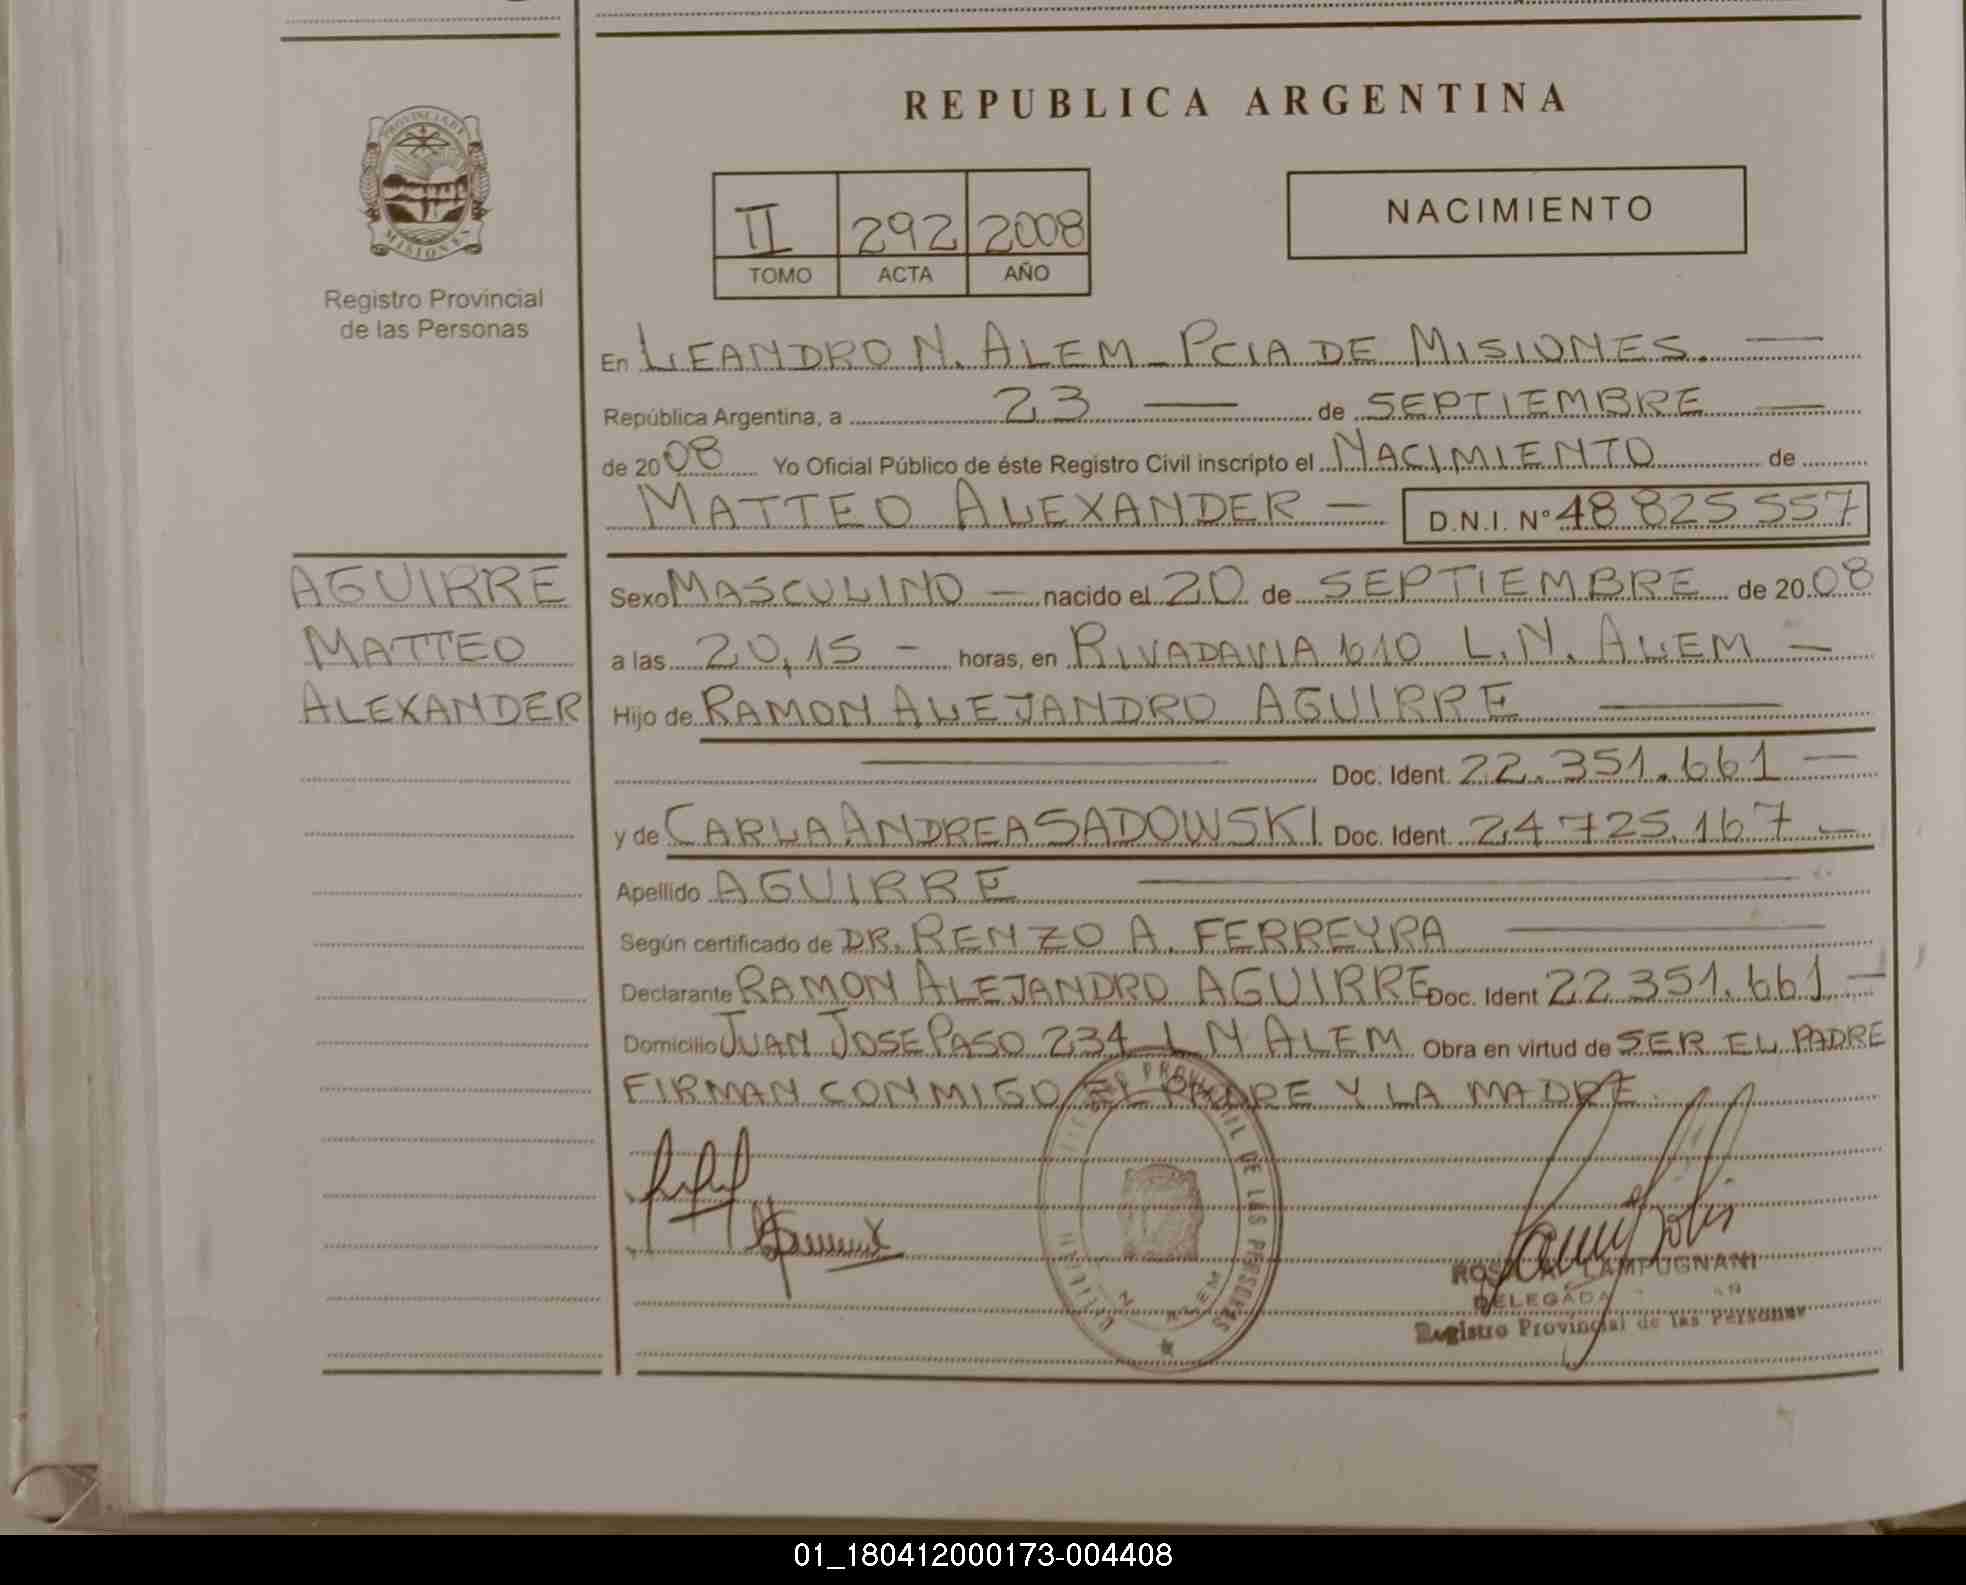 REPUBLICA ARGENTINA
PROVINCIA DE
MISIONES
Registro Provincial
de las Personas
II 292 2008
TOMO ACTA AÑO
NACIMIENTO
En LEANDRO N. ALEM - PCIA DE MISIONES. —
República Argentina, a 23 — de SEPTIEMBRE —
de 2008 Yo Oficial Público de éste Registro Civil inscripto el NACIMIENTO de
MATTEO ALEXANDER — D.N.I. N° 48 825 557
AGUIRRE
MATTEO
ALEXANDER
Sexo MASCULINO — nacido el 20 de SEPTIEMBRE de 2008
a las 20,15 — horas, en RIVADAVIA 610 L.N. ALEM —
Hijo de RAMON ALEJANDRO AGUIRRE —
— Doc. Ident. 22.351.661 —
y de CARLA ANDREA SADOWSKI Doc. Ident. 24 725.167 —
Apellido AGUIRRE —
Según certificado de DR. RENZO A. FERREYRA —
Declarante RAMON ALEJANDRO AGUIRRE Doc. Ident 22 351.661 —
Domicilio JUAN JOSE PASO 234 L N ALEM Obra en virtud de SER EL PADRE
FIRMAN CONMIGO EL PADRE Y LA MADRE.
DE LAS PERSONAS
N ALEM
LAMPUGNANI
DELEGADA
Registro Provincial de las Personas
01_180412000173-004408